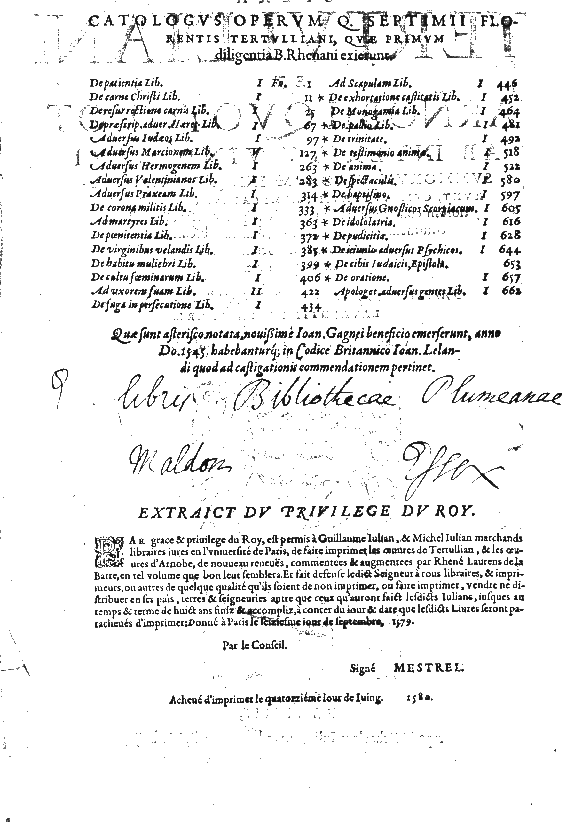 CATOLOGVS OPERVM Q. SEPTIMII FLO-
RENTIS TERTVLLIANI, QVÆ PRIMVM
diligentia B. Rhenani exierunt.
De patientia Lib. I Fo. 1
De carne Christi Lib. I 11
De resurrectione carnis Lib. I 25
De præscrip. aduer. Hæret. Lib. I 67
Aduersus Iudæos Lib. I 97
Aduersus Marcionem Lib. 127
Aduersus Hermogenem Lib. I 263
Aduersus Valentinianos Lib. I 283
Aduersus Praxeam Lib. I 314
De corona militis Lib. I 333
Ad martyres Lib. I 363
De pœnitentia Lib. I 372
De virginibus velandis Lib. I 385
De habitu muliebri Lib. I 399
De cultu fœminarum Lib. I 406
Ad vxorem suam Lib. II 422
De fuga in persecutione Lib. I 434
Ad Scapulam Lib. I 446
* De exhortatione castitatis Lib. I 452
* De Monogamia Lib. I 464
* De pallio Lib. I 481
* De trinitate. I 492
* De testimonio animæ. I 518
* De anima. I 522
* De spectaculis. I 580
* De baptismo. I 597
* Aduersus Gnosticos Scorpiacum. I 605
* De idololatria. I 616
* De pudicitia. I 628
* De ieiunio aduersus Psychicos. I 644
* De cibis Iudaicis, Epistola. 653
* De oratione. I 657
Apologet. aduersus gentes Lib. I 662
Quæ sunt asterisco notata, nouissimè Ioan. Gagnei beneficio emerserunt, anno
Do. 1545. habebanturq; in Codice Britannico Ioan. Lelan-
di quod ad castigationis commendationem pertinet.
libris Bibliothecae Plumeanae
Maldon Essex
EXTRAICT DV PRIVILEGE DV ROY.
PAR grace & priuilege du Roy, est permis à Guillaume Iulian, & Michel Iulian marchands
libraires iurés en l'vniuersité de Paris, de faire imprimer les œuures de Tertullian, & les œu-
ures d'Arnobe, de nouueau reueuës, commentees & augmentees par Rhené Laurens de la
Barre, en tel volume que bon leur semblera. Et fait defense ledict Seigneur à tous libraires, & impri-
meurs, ou autres de quelque qualité qu'ils soient de non imprimer, ou faire imprimer, vendre ne di-
stribuer en ses païs, terres & seigneuries autre que ceux qu'auront faict lesdicts Iulians, iusques au
temps & terme de huict ans finis & accomplis, à conter du iour & date que lesdicts Liures seront pa-
racheués d'imprimer: Donné à Paris le seziesme iour de septembre, 1579.
Par le Conseil.
Signé MESTREL.
Acheué d'imprimer le quatorziéme iour de Iuing. 1580.